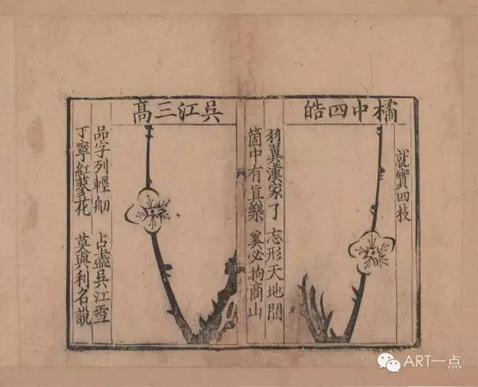 橘中四皓
就實四枝
羽翼漢家了 忘形天地間
箇中有眞樂 奚必拘商山
吳江三高
品字列輕舠 占盡吳江雪
丁寧紅蓼花 莫與利名說
ART一点